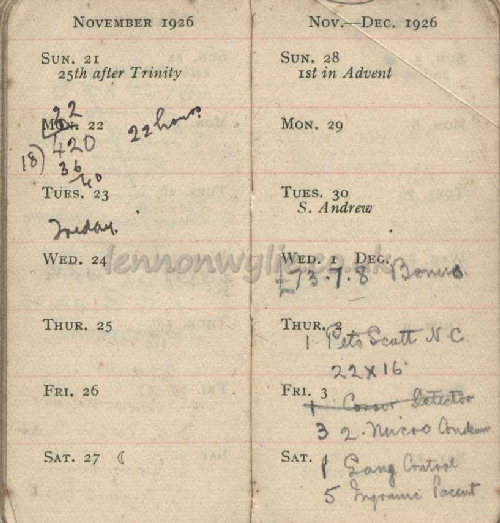 NOVEMBER 1926
SUN. 21
25th after Trinity
22
MON. 22
22 hours
18) 420
36
40
TUES. 23
Friday
WED. 24
THUR. 25
FRI. 26
SAT. 27 ☾
NOV.—DEC. 1926
SUN. 28
1st in Advent
MON. 29
TUES. 30
S. Andrew
WED. 1 DEC.
£73.7.8 Bonus
THUR. 2
1 Peto Scott N.C.
22 x 16
FRI. 3
1 Cossor Detector
3 2. Micro
SAT. 4
1 Gang Control
5 Igranic Pacent
lennonwylie.co.uk